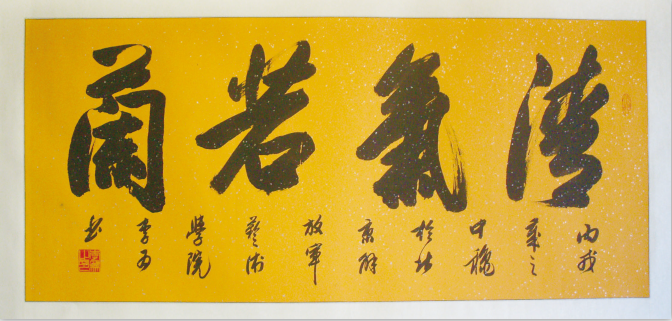 清氣若蘭
丙戌
歲之
中穐
於北
京解
放軍
藝術
學院
李
书